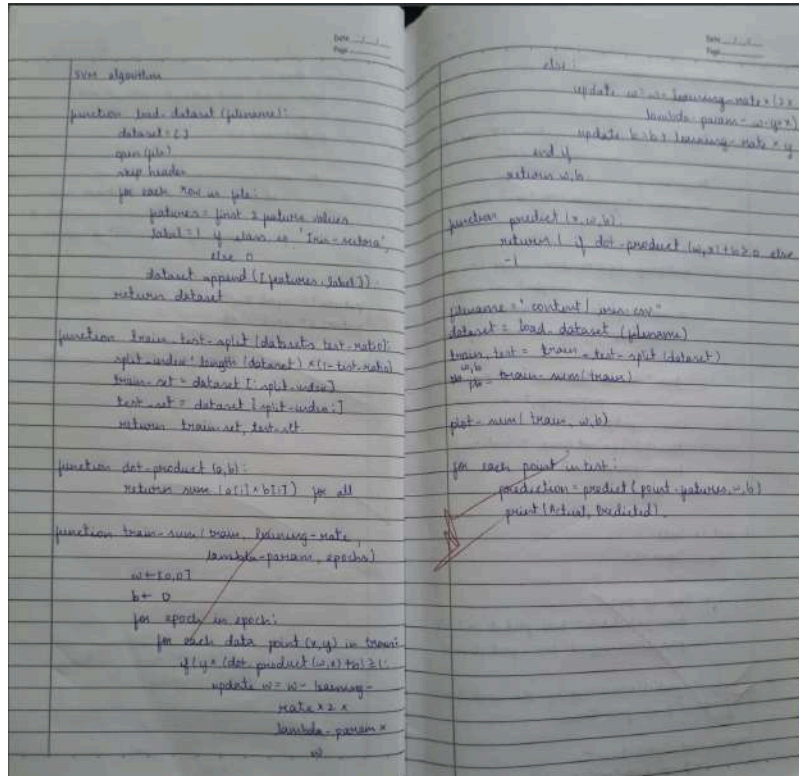 Date __/__/__
Page
SVM algorithm
function load-dataset (filename):
dataset = [ ]
open (file)
skip header
for each row in file:
features = first 2 feature values
label = 1 if class is 'Iris-setosa',
else 0
dataset append ([features, label])
return dataset
function train-test-split (dataset, test-ratio):
split-index = length (dataset) × (1 - test-ratio)
train-set = dataset [:split-index]
test-set = dataset [split-index:]
return train-set, test-set
function dot-product (a,b):
return sum (a[i] × b[i]) for all
function train-svm (train, learning-rate,
lambda-param, epochs)
w ← [0,0]
b ← 0
for epoch in epoch:
for each data point (x,y) in train:
if (y × (dot product (w,x) + b) ≥ 1:
update w = w - learning-
rate × 2 ×
lambda-param ×
w
Date __/__/__
Page
else:
update w = w - learning-rate × (2 ×
lambda-param - w - y × x)
update b = b + learning-rate × y
end if
return w, b
function predict (x, w, b):
returns 1 if dot-product (w,x) + b ≥ 0 else
-1
filename = " content / iris.csv"
dataset = load-dataset (filename)
train, test = train-test-split (dataset)
w,b
= train-svm (train)
plot-svm (train, w, b)
for each point in test:
prediction = predict (point-features, w, b)
print (Actual, Predicted).